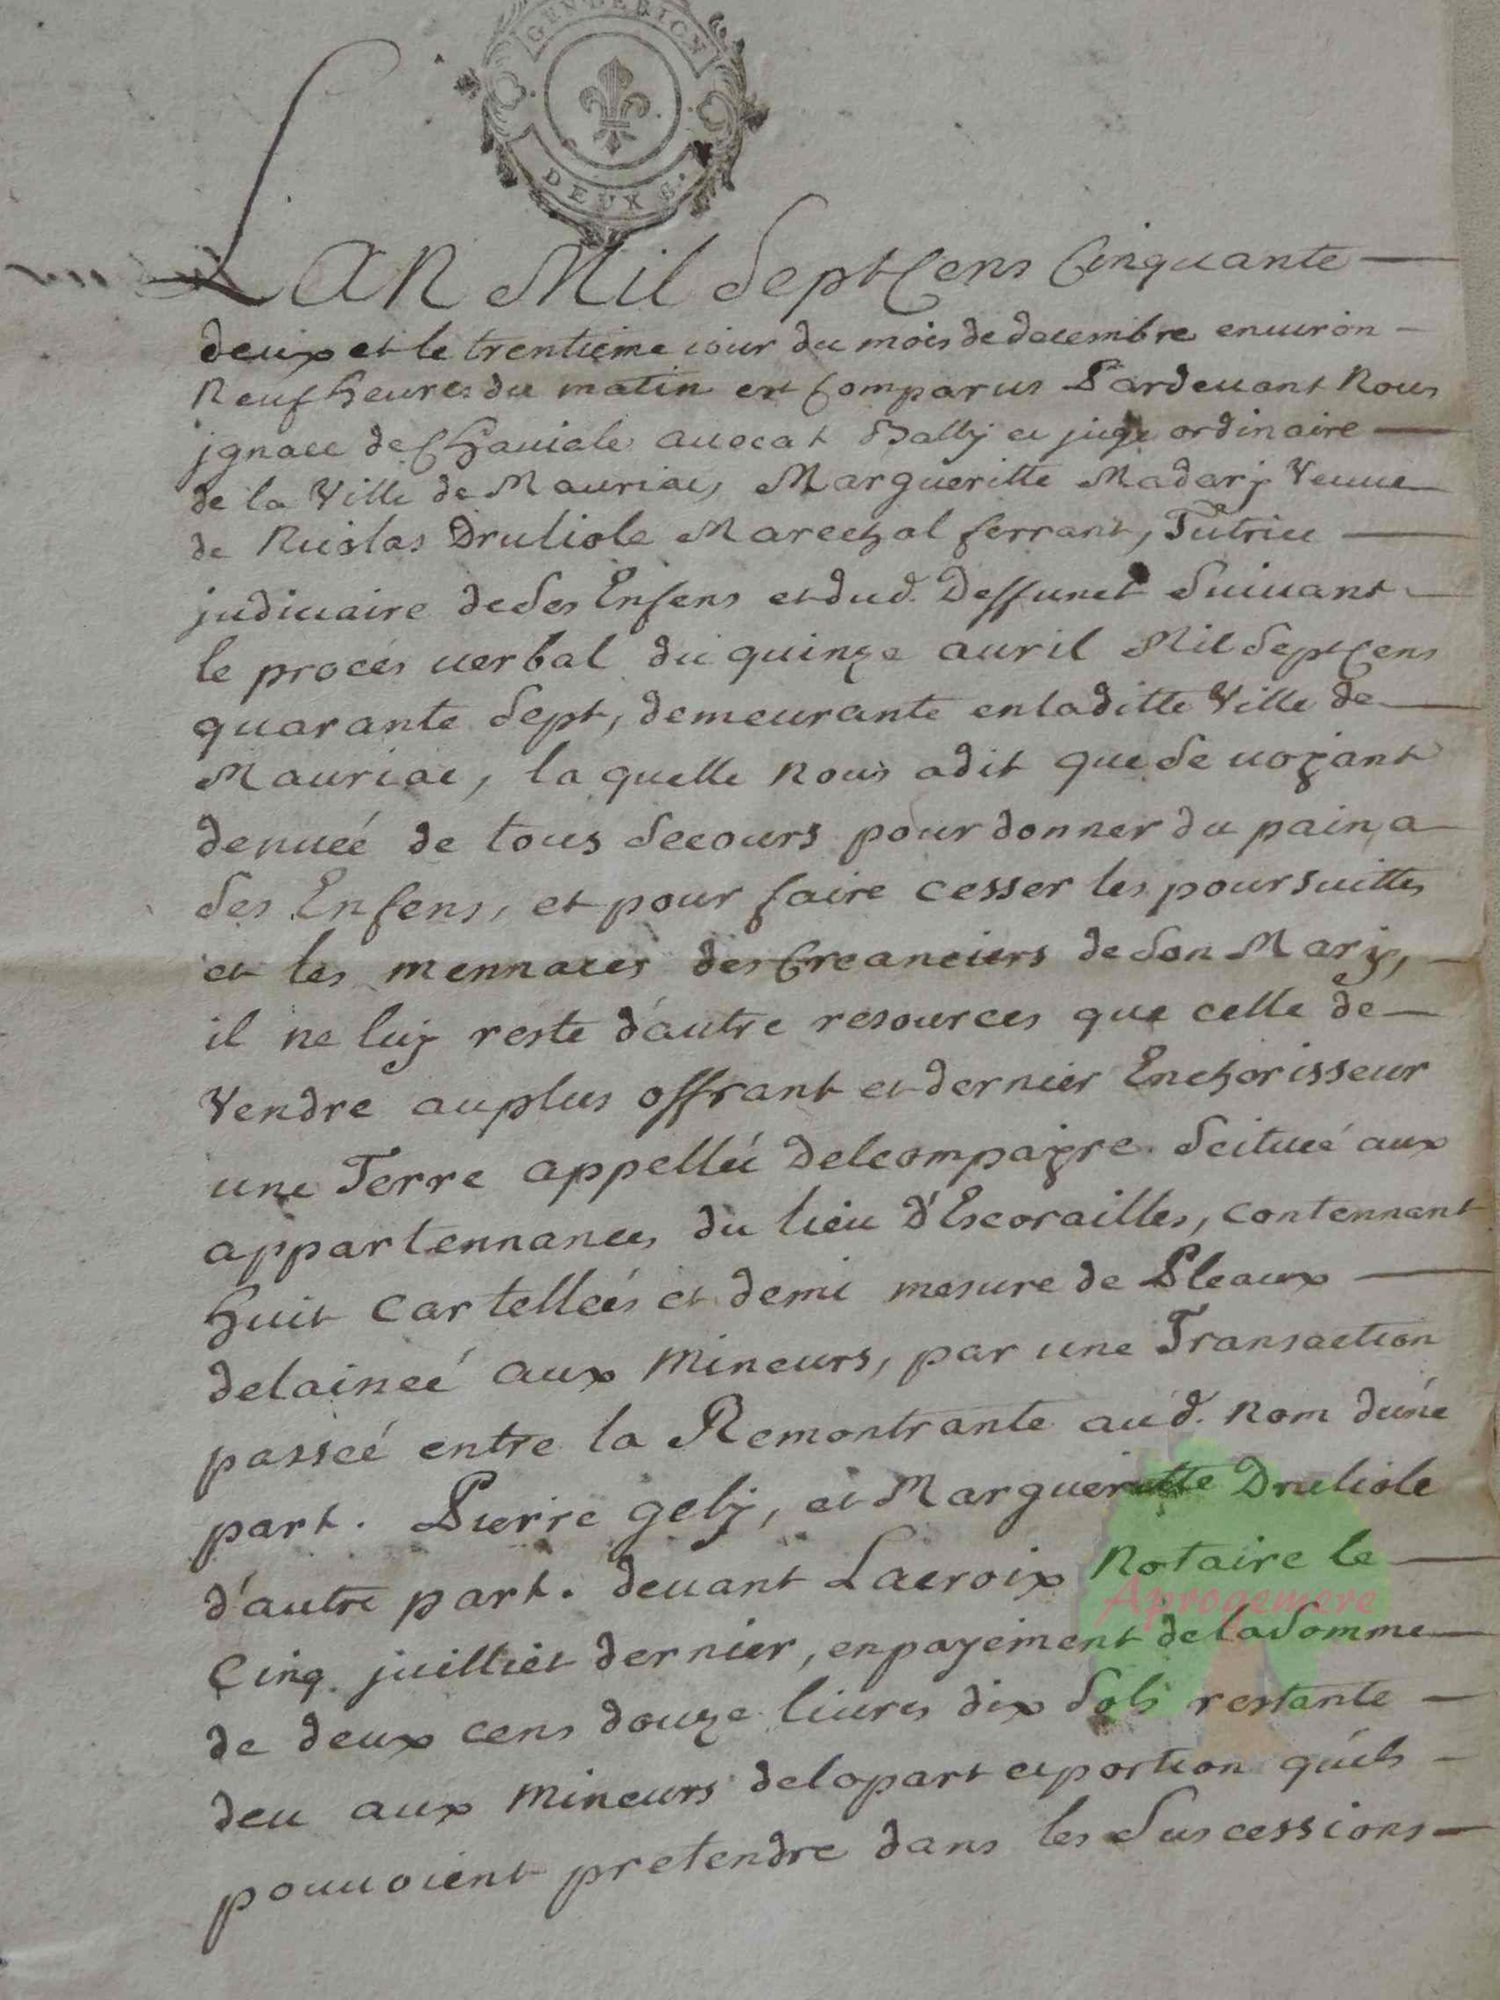 GEN. DE RION
DEUX S.
L'AN Mil Sept Cens Cinquante
deux et le trentieme iour du mois de decembre enuiron
Neuf heures du matin est Comparus Pardeuant Nous
jgnace de Chauiale auocat Bally et juge ordinaire
de la Ville de Mauriac, Margueritte Madarj Veuue
de Nicolas Druliole Marechal ferrant, Tutrice
judiciaire de ses Enfens et dud. Deffunct Suiuant
le procés uerbal du quinze auril Mil Sept Cens
quarante Sept, demeurante en laditte Ville de
Mauriac, la quelle Nous a dit que Se uoyant
denuée de tous Secours pour donner du pain a
Ses Enfens, et pour faire cesser les poursuittes
et les mennaces des Creanciers de Son Mary,
il ne luy reste d'autre resources que celle de
Vendre au plus offrant et dernier Encharisseur
une Terre appellée Delcompaigre Scituée aux
appartennances du lieu d'Escorailles, contennent
huit Cartellées et demi mesure de Pleaux
delaineé aux Mineurs, par une Transaction
passeé entre la Remontrante aud. nom d'une
part. Pierre gely, et Margueritte Druliole
d'autre part. deuant Lacroix Notaire le
Cinq juilliet dernier, en payement de la Somme
de deux cens douze liures dix Sols restante
deu aux Mineurs de la part et portion qu'ils
pouuoient pretendre dans les Successions
Aprogemere